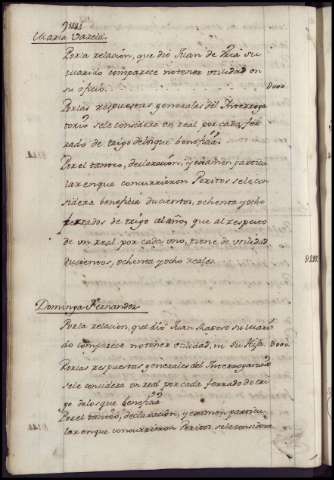 Maria Garcia
Por la relacion, que dió Juan de su
marido comparece no tener utilidad en
su oficio. D000
Por las respuestas generales del Interroga
torio se le considera un real por cada fer
rado de trigo de los que beneficia
Por el tanteo, declaracion, y examen particu
lar en que concurrieron Peritos se le con
sidera beneficia ducientos, ochenta y ocho
ferrados de trigo al año, que al respecto
de un real por cada uno, tiene de utilidad
ducientos, ochenta y ocho reales. D288
Dominga Fernandez
Por la relacion, que dió Juan su mari
do comparece no tener utilidad, ni su Hija D000
Por las respuestas generales del Interrogatorio
se le considera un real por cada ferrado de tri
go de los que beneficia
Por el tanteo, declaracion, y examen particu
lar en que concurrieron Peritos, se le considera